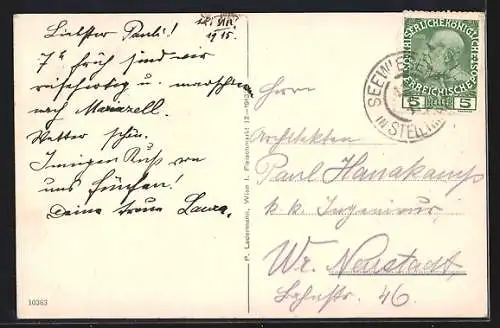 Liebster Pauli!
1915.
7h früh sind wir
reisefertig u. marschieren
nach Mariazell.
Wetter schön.
Innigen Kuss von
uns fünfen!
Deine treue Laura.
10363
P. Ledermann, Wien I. Fleischmarkt 12-1910
KAISERLICHE KÖNIGLICHE
ÖSTERREICHISCHE POST
5 HELLER 5
SEEWIESEN
IN STEIERM
Herrn
Architekten
Paul Hanakamp
k.k. Ingenieur
Wr. Neustadt,
Bahnstr. 46.